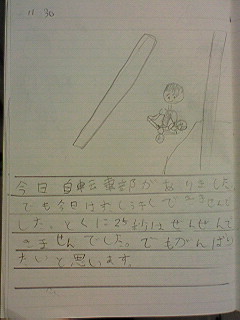 11.30
今日 自転車部がありました。
でも今日は
できません
した。とくに はぜんぜんで
きませんでした。でもがんばり
たいと思います。